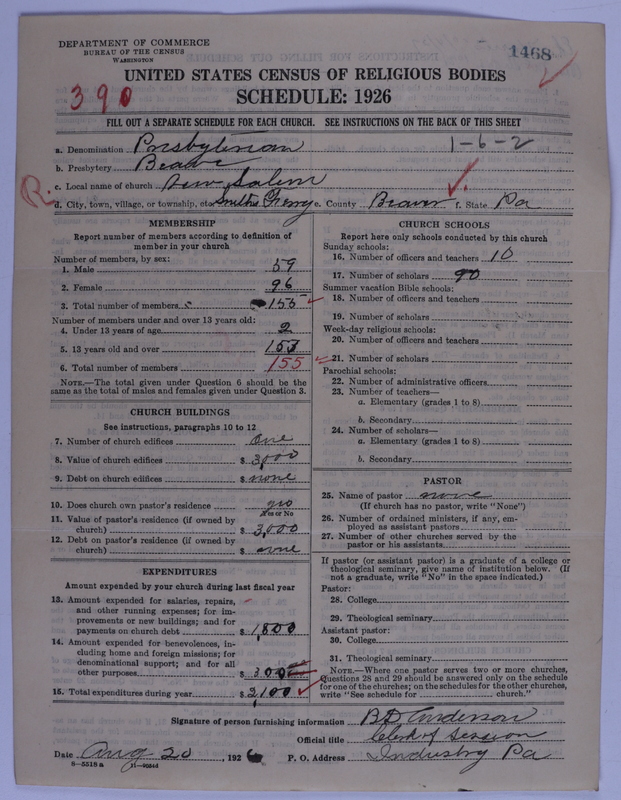 DEPARTMENT OF COMMERCE
BUREAU OF THE CENSUS
WASHINGTON
1468
UNITED STATES CENSUS OF RELIGIOUS BODIES
390
SCHEDULE: 1926
FILL OUT A SEPARATE SCHEDULE FOR EACH CHURCH. SEE INSTRUCTIONS ON THE BACK OF THIS SHEET
a. Denomination Presbyterian 1-6-2
b. Presbytery Beaver
c. Local name of church New Salem
R.
d. City, town, village, or township, etc. Smiths Ferry e. County Beaver f. State Pa
MEMBERSHIP
Report number of members according to definition of
member in your church
Number of members, by sex:
1. Male 59
2. Female 96
3. Total number of members 155
Number of members under and over 13 years old:
4. Under 13 years of age 2
5. 13 years old and over 153
6. Total number of members 155
NOTE.—The total given under Question 6 should be the
same as the total of males and females given under Question 3.
CHURCH BUILDINGS
See instructions, paragraphs 10 to 12
7. Number of church edifices one
8. Value of church edifices $ 3,000
9. Debt on church edifices $ none
10. Does church own pastor's residence
Yes or No
11. Value of pastor's residence (if owned by
church) $ 3,000
12. Debt on pastor's residence (if owned by
church) $ none
EXPENDITURES
Amount expended by your church during last fiscal year
13. Amount expended for salaries, repairs,
and other running expenses; for im-
provements or new buildings; and for
payments on church debt $ 1,800
14. Amount expended for benevolences, in-
cluding home and foreign missions; for
denominational support; and for all
other purposes $ 300
15. Total expenditures during year $ 2,100
CHURCH SCHOOLS
Report here only schools conducted by this church
Sunday schools:
16. Number of officers and teachers 10
17. Number of scholars 90
Summer vacation Bible schools:
18. Number of officers and teachers
19. Number of scholars
Week-day religious schools:
20. Number of officers and teachers
21. Number of scholars
Parochial schools:
22. Number of administrative officers
23. Number of teachers—
a. Elementary (grades 1 to 8)
b. Secondary
24. Number of scholars—
a. Elementary (grades 1 to 8)
b. Secondary
PASTOR
25. Name of pastor none
(If church has no pastor, write "None")
26. Number of ordained ministers, if any, em-
ployed as assistant pastors
27. Number of other churches served by the
pastor or his assistants
If pastor (or assistant pastor) is a graduate of a college or
theological seminary, give name of institution below. (If
not a graduate, write "No" in the space indicated.)
Pastor:
28. College
29. Theological seminary
Assistant pastor:
30. College
31. Theological seminary
NOTE.—Where one pastor serves two or more churches,
Questions 28 and 29 should be answered only on the schedule
for one of the churches; on the schedules for the other churches,
write "See schedule for church."
Signature of person furnishing information B D Anderson
Official title Clerk of Session
Date Aug 20, 1926 P. O. Address Industry Pa
8—5518 a